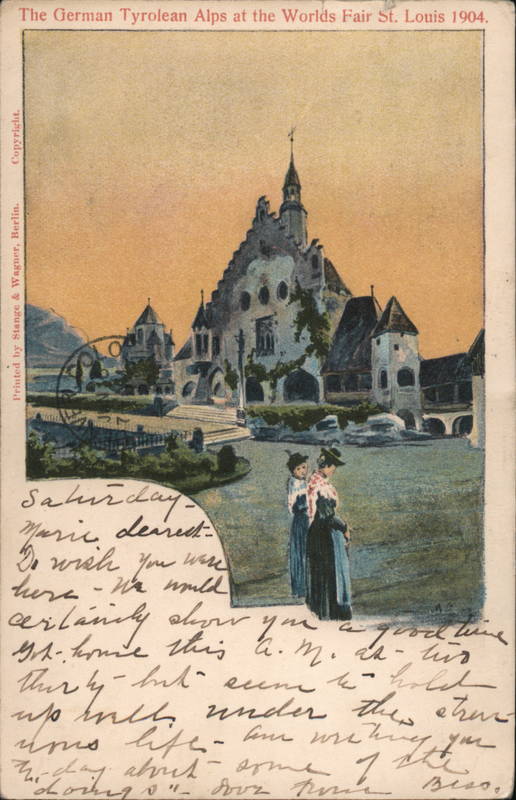 The German Tyrolean Alps at the Worlds Fair St. Louis 1904.
Printed by Stange & Wagner, Berlin. Copyright.
Saturday-
Marie dearest-
Do wish you were
here - We would
certainly show you a good time
Got home this A.M. at two
thirty - but seem to hold
up well under the stren-
uous life - Am writing you
to-day about some of the
"doings" - Love from Bess.